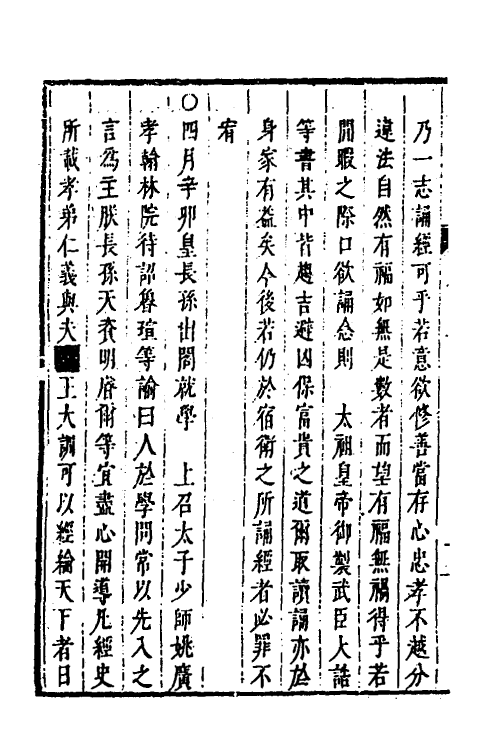 乃一志誦經可乎若意欲修善當存心忠孝不越分
違法自然有福如無是數者而望有福無禍得乎若
閒暇之際口欲誦念則　太祖皇帝御製武臣大誥
等書其中皆趨吉避凶保富貴之道爾取讀誦亦於
身家有益矣今後若仍於宿衛之所誦經者必罪不
宥
○四月辛卯皇長孫出閤就學　上召太子少師姚廣
孝翰林院待詔魯瑄等諭曰人於學問常以先入之
言爲主朕長孫天資明睿爾等宜盡心開導凡經史
所載孝弟仁義與夫王大訓可以經綸天下者日